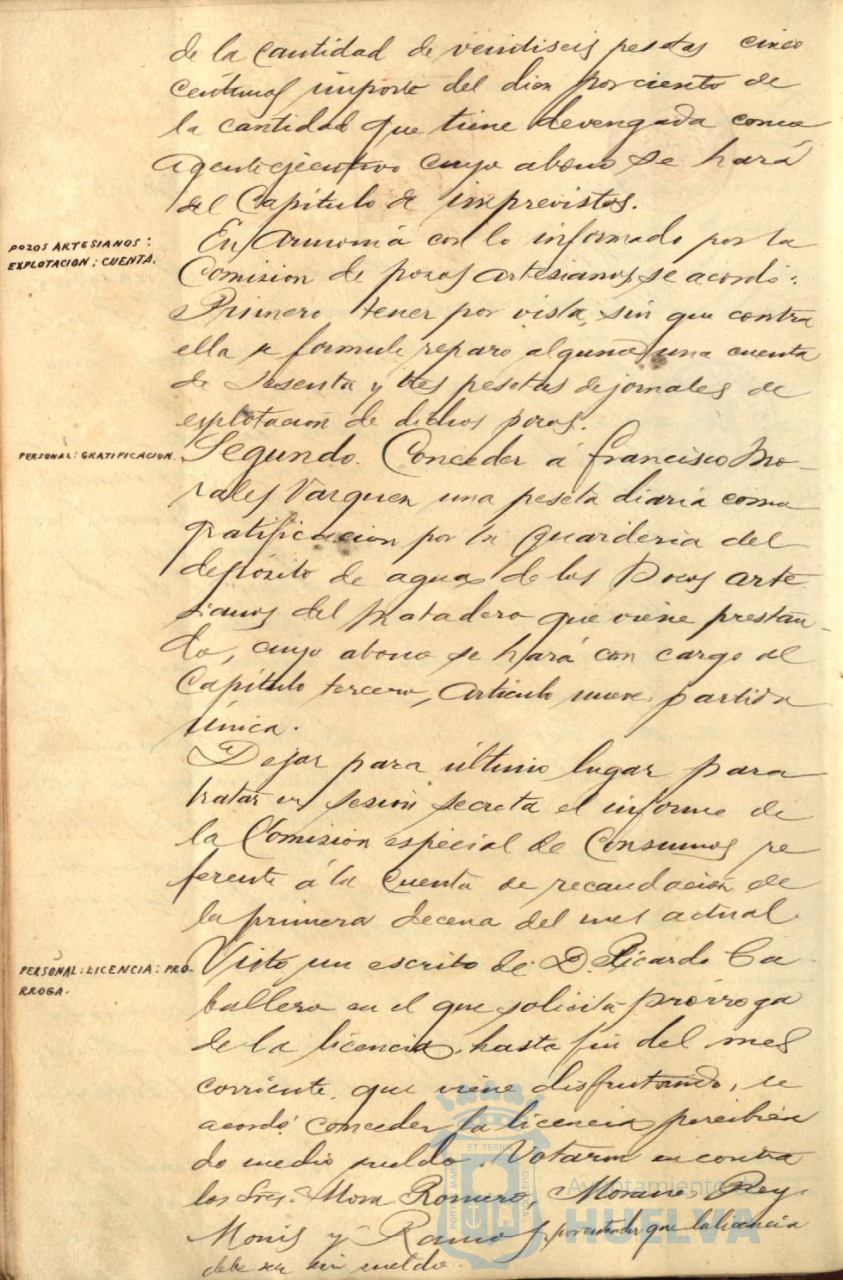 de la cantidad de veintiseis pesetas cinco
céntimos importe del diez por ciento de
la cantidad que tiene devengada como
agente ejecutivo cuyo abono se hará
del Capítulo de imprevistos.
POZOS ARTESIANOS:
EXPLOTACION: CUENTA.
En armonía con lo informado por la
Comision de pozos artesianos, se acordó:
Primero tener por vista, sin que contra
ella se formule reparo alguno una cuenta
de sesenta y tres pesetas de jornales de
explotación de dichos pozos.
PERSONAL: GRATIFICACION.
Segundo. Conceder á Francisco Mo-
rales Varquen una peseta diaria como
gratificacion por la guarderia del
depósito de aguas de los Pozos arte
sianos del Matadero que viene prestan-
do, cuyo abono se hará con cargo al
Capítulo tercero, Artículo nueve partida
única.
Dejar para último lugar para
tratar en sesión secreta el informe de
la Comision especial de Consumos re
ferente á la cuenta de recaudación de
la primera decena del mes actual.
PERSONAL: LICENCIA: PRÓ-
RROGA.
Visto un escrito de D. Ricardo Ca-
ballero en el que solicita prórroga
de la licencia, hasta fin del mes
corriente, que viene disfrutando, se
acordó conceder la licencia percibien
do medio sueldo. Votaron en contra
los Sres. Mora Romero, Moreno, Rey,
Monis y Ramos, por entender que la licencia
debe ser sin sueldo.
ET TERRAE
Ayuntamiento de
HUELVA